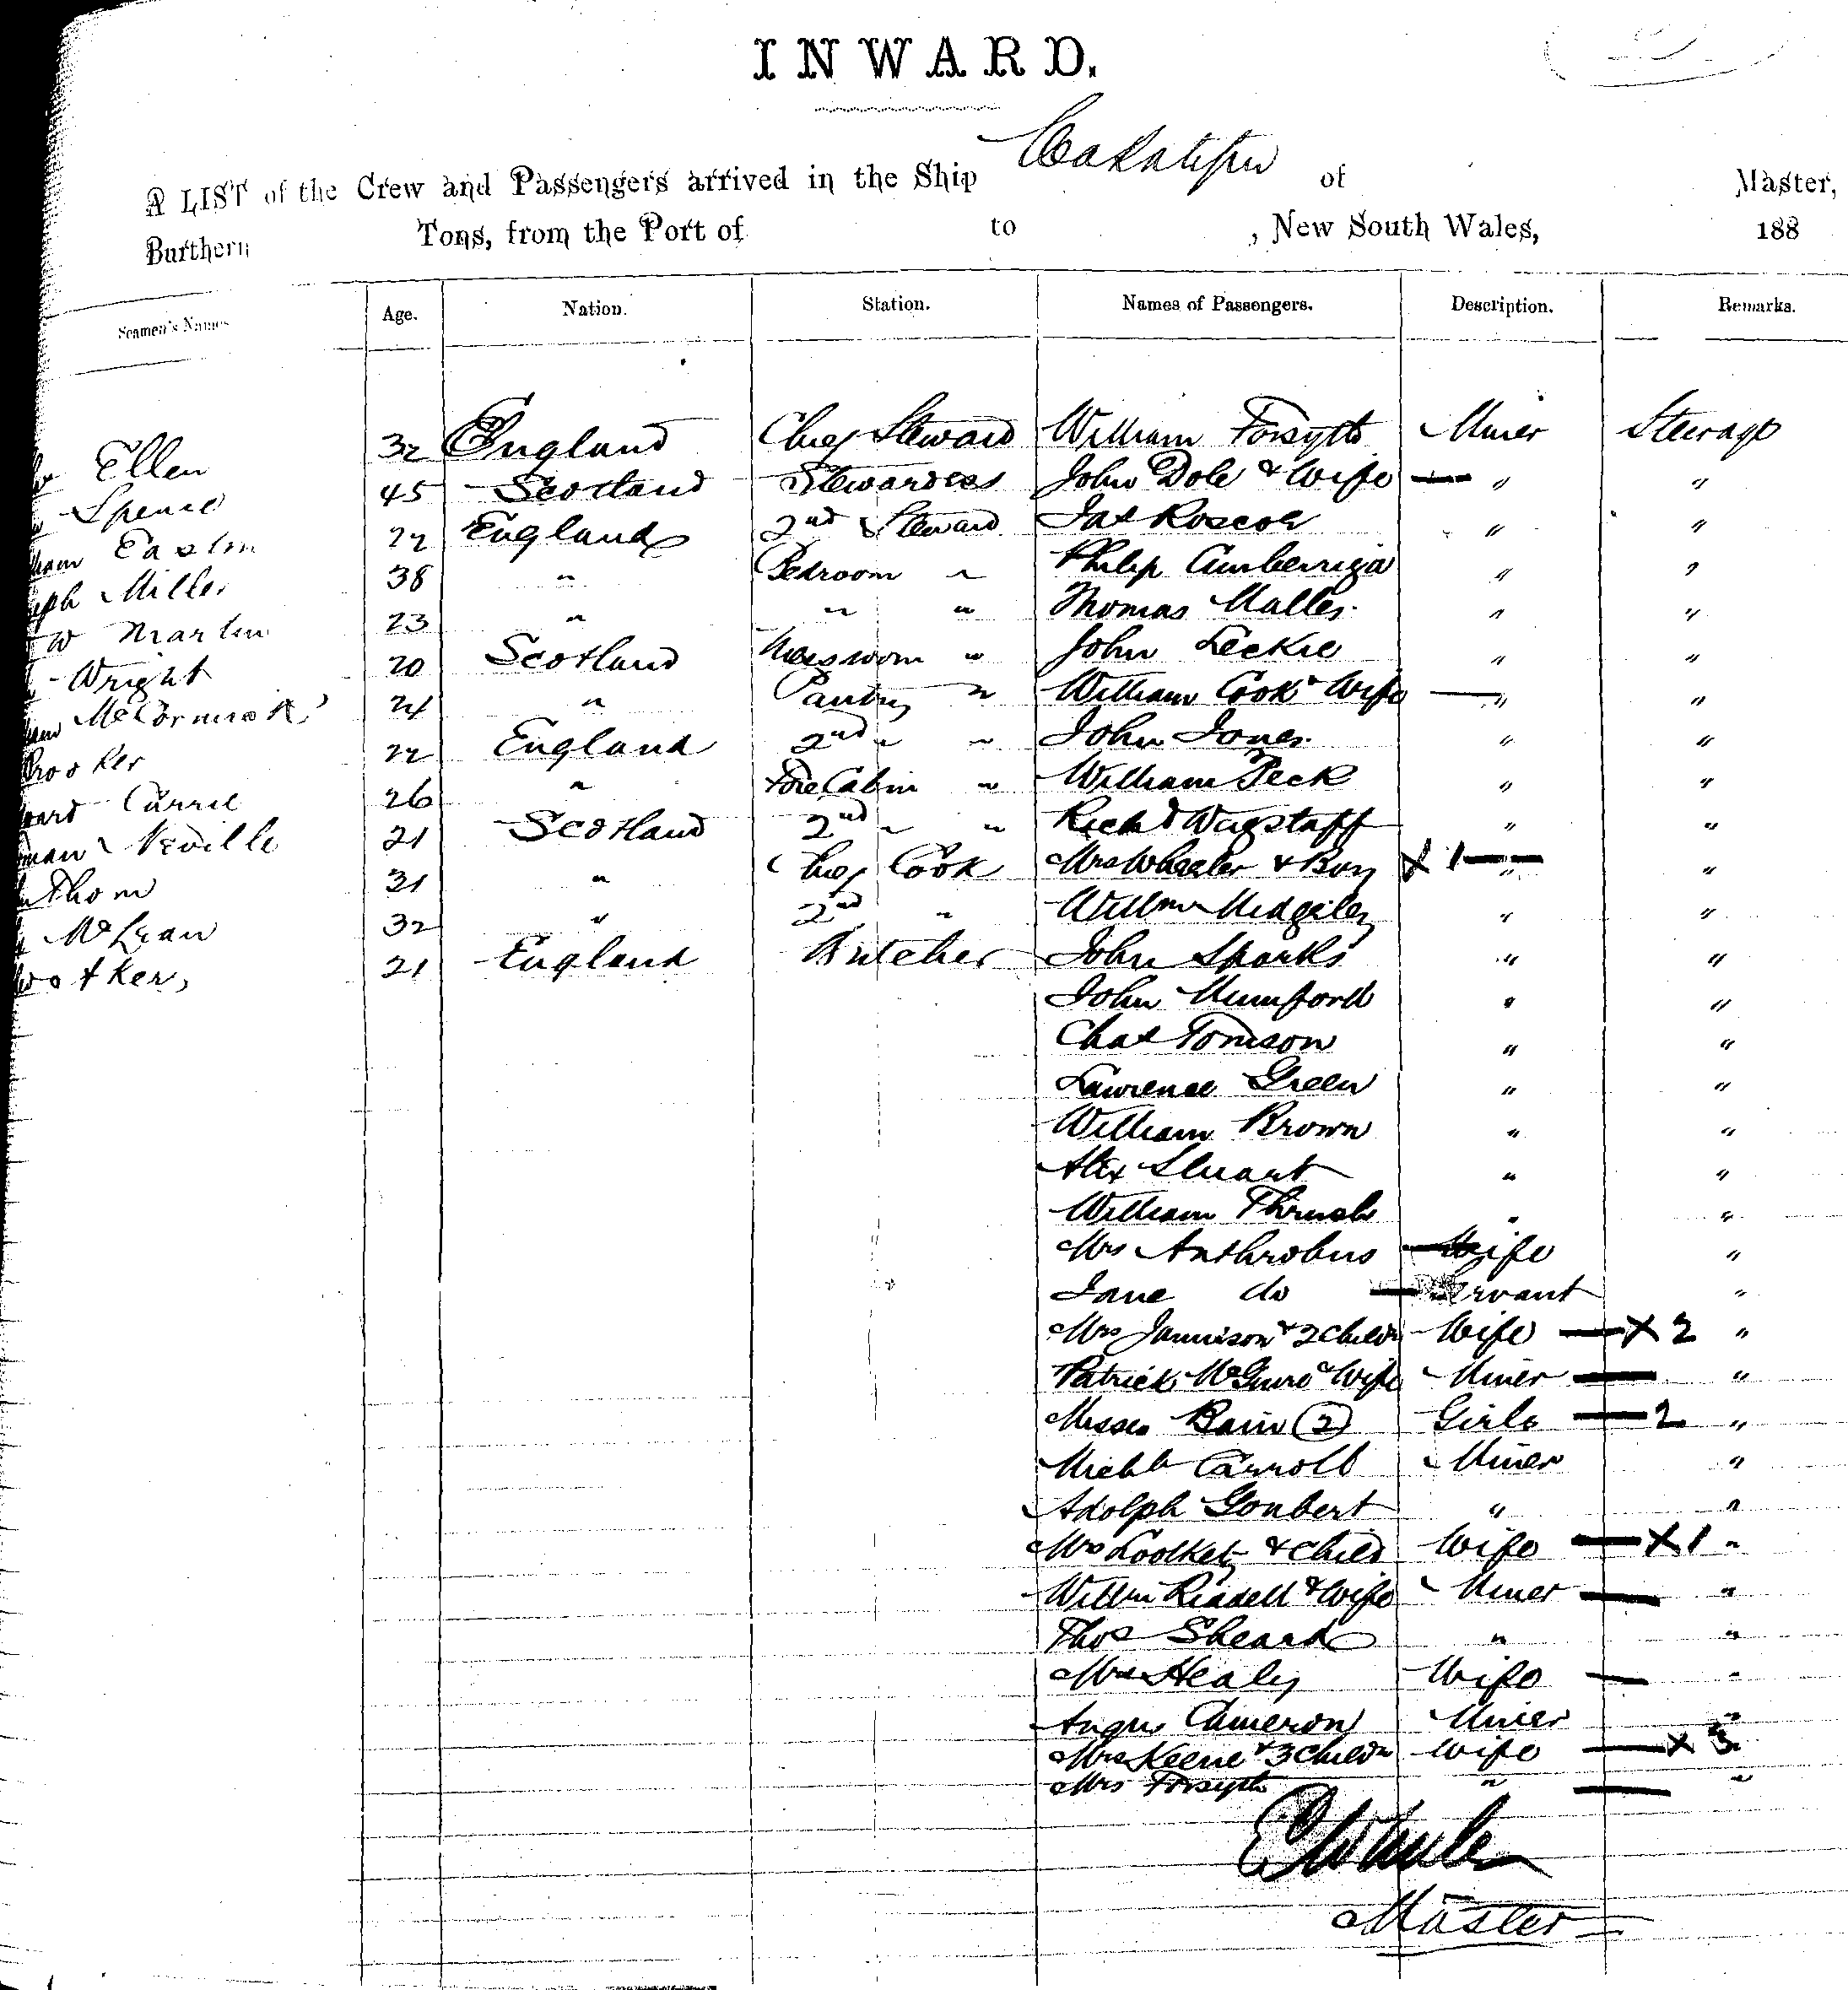 INWARD.
A LIST of the Crew and Passengers arrived in the Ship Wakatipu of Master,
Burthern Tons, from the Port of to , New South Wales, 188
Seamen's Names Age. Nation. Station. Names of Passengers. Description. Remarks.
Ellen 32 England Chief Steward William Forsyth Miner Steerage
Spence 45 Scotland Stewardess John Dole & Wife — " "
Easton 22 England 2nd Steward Jas Roscoe " "
Miller 38 " Bedroom " Philip " "
W Martin 23 " " " Thomas " "
Wright 20 Scotland Messroom " John Leckie " "
McCormack 21 " Pantry " William Cook & Wife — " "
22 England 2nd " " John Jones " "
Currie 26 " Fore Cabin " William Peck " "
Neville 21 Scotland 2nd " " Richd Wagstaff " "
Thom 31 " Chief Cook Mrs Wheeler & Boy X 1 — " "
McLean 32 " 2nd " Willm Midgeley " "
21 England Butcher John Sparks " "
John Mumford " "
Chas Tomson " "
Lawrence Green " "
William Brown " "
Alex Stuart " "
William Thrush " "
Mrs Anthrobus — Wife "
Jane do — Servant "
Mrs Jamison & 2 Childn Wife — X 2 "
Patrick McGuire & Wife Miner — "
Misses Bain (2) Girls — 2 "
Michl Carroll Miner "
Adolph Goubert " "
Mrs & Child Wife — X 1 "
Willm Riddell & Wife Miner — "
Thos Sheard " "
Mrs Healy Wife — "
Angus Cameron Miner "
Mrs Keene & 3 Childn Wife — X 3 "
Mrs Forsyth " — "
Master